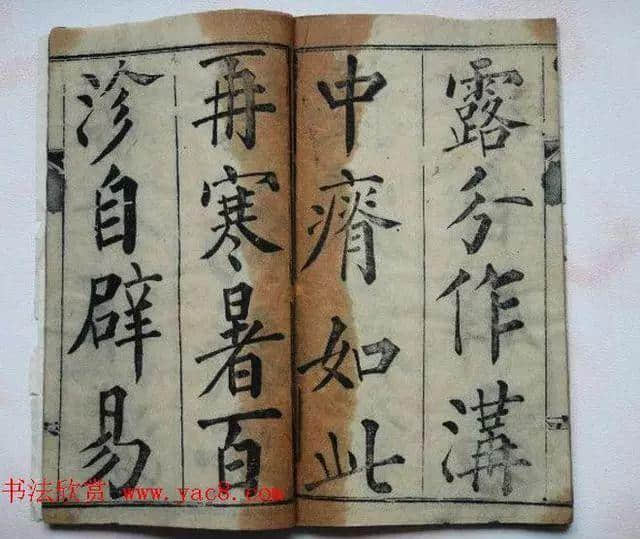 露分作溝
中瘠如此
再寒暑百
沴自辟易
书法欣赏 www.yac8.com